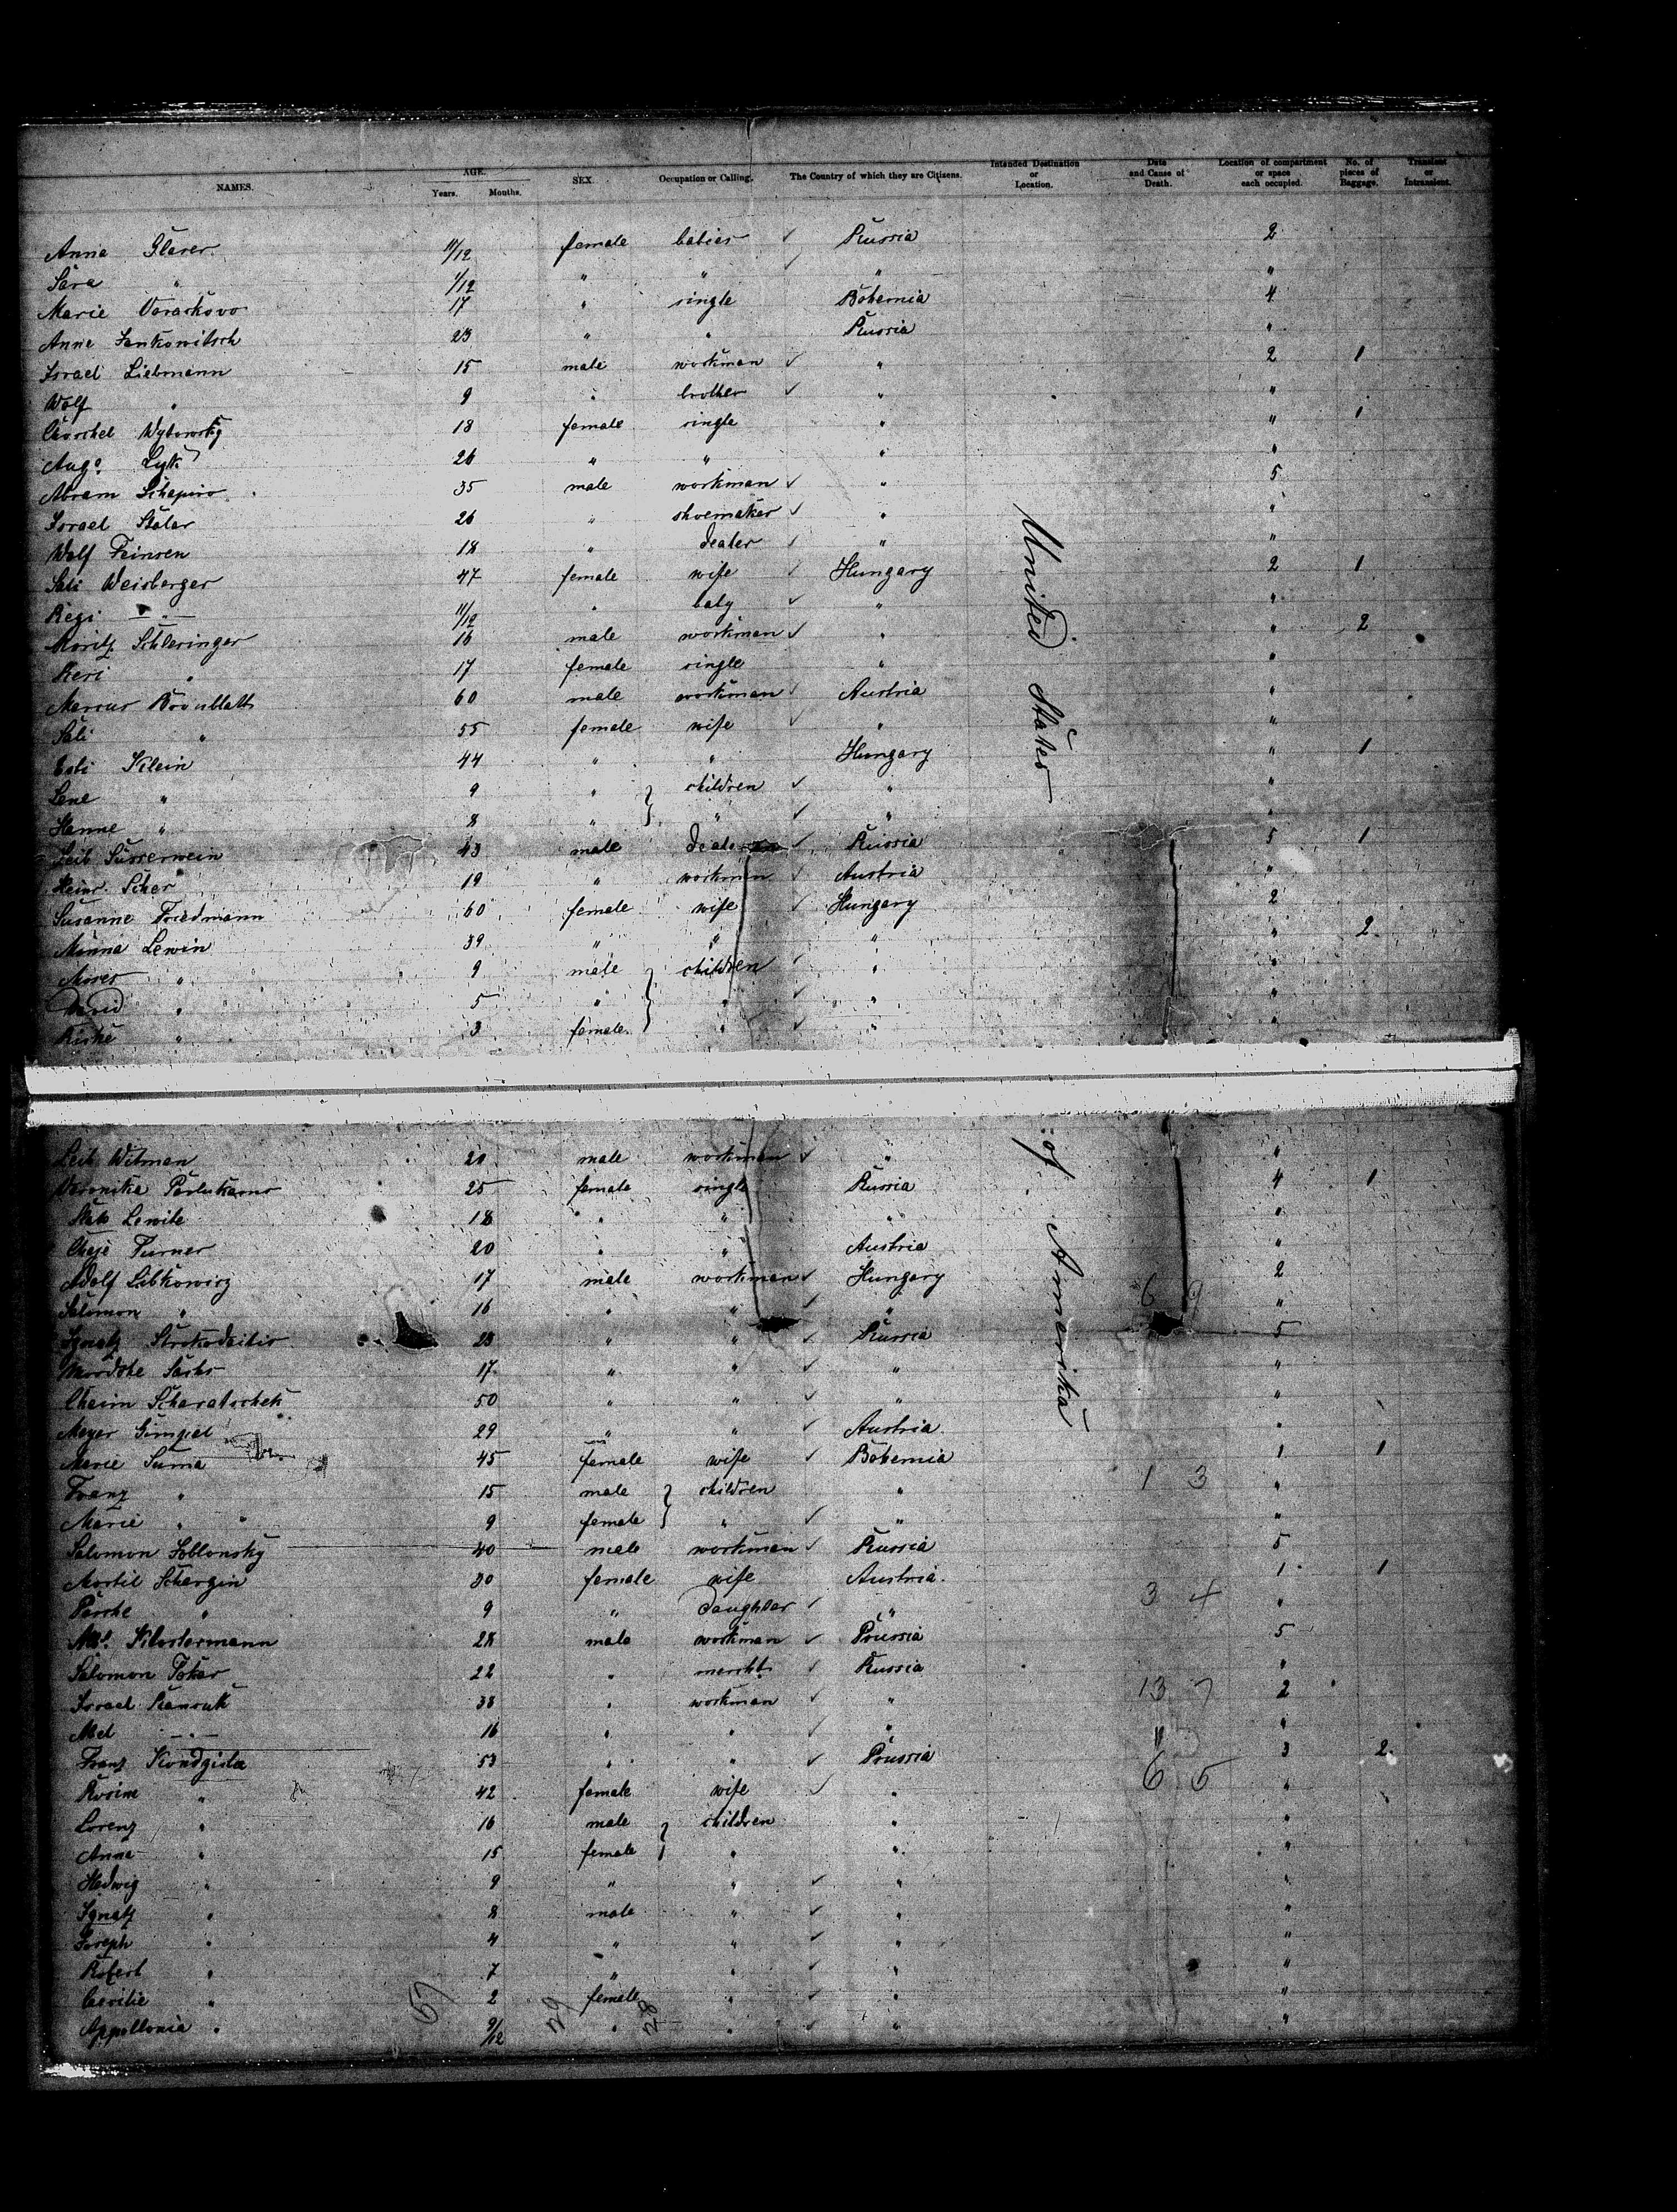 NAMES. AGE. Years. Months. SEX. Occupation or Calling. The Country of which they are Citizens. Intended Destination or Location. Date and Cause of Death. Location of compartment or space each occupied. No. of pieces of Baggage. Transient or Intransient.
Anna Glaser 11/12 female babies ✓ Russia 2
Sara " 1/12 " " ✓ " "
Marie 17 " single Bohemia 4
Anne Jankowitsch 23 " " Russia "
Israel Liebmann 15 male workman ✓ " 2 1
Wolf " 9 " brother ✓ " "
18 female single " " 1
Aug. Lyk 26 " " " "
Abram Schapiro 35 male workman ✓ " 5
Israel Stolar 26 " shoemaker ✓ " "
Wolf Feinsen 18 " dealer ✓ " "
Sali Weisberger 47 female wife ✓ Hungary 2 1
Regi — " — 11/12 " baby ✓ " "
Moritz Schlesinger 16 male workman ✓ " " 2
Resi " 17 female single " "
Marcus 60 male workman ✓ Austria "
Sali " 55 female wife ✓ " "
Esti Klein 44 " " Hungary " 1
Lene " 9 " children ✓ " "
Hanne " 8 " " ✓ " "
Leib Susserwein 43 male ✓ Russia 5 1
Heinr. Scher 19 " workman ✓ Austria "
Susanne Friedmann 60 female wife ✓ Hungary 2
Minna Lewin 39 " " " " 2
Moses " 9 male children ✓ " "
David " 5 " " ✓ " "
Riske " 3 female " ✓ " "
United States
Leib Witman 20 male workman ✓ " "
Veronika 25 female single Russia 4 1
Lewite 18 " " " "
Chaje Turner 20 " " Austria "
Adolf Libkowicz 17 male workman ✓ Hungary 2
Salomon " 16 " " ✓ " 6 9 "
Ignatz 23 " " ✓ Russia 5
Mordche Sachs 17 " " ✓ " "
Chaim Scharatschek 50 " " ✓ " "
Meyer Gimpel 29 " " ✓ Austria "
Marie Suma 45 female wife ✓ Bohemia 1 1
Franz " 15 male children " 1 3 "
Marie " " 9 female " ✓ " "
Salomon Soblonsky 40 male workman ✓ Russia 5
Schergin 30 female wife Austria 1 1
" 9 " Daughter ✓ " 3 4 "
Klostermann 28 male workman ✓ Prussia 5
Salomon Tokar 22 " mercht. ✓ Russia "
Israel 38 " workman ✓ " 13 7 2
— " — 16 " " ✓ " " "
Franz Kondziela 53 " " ✓ Prussia 3 2
Rosine " 42 female wife ✓ " 6 5 "
Lorenz " 16 male children " "
Anna " 15 female " " "
Hedwig " 9 " " ✓ " "
Ignatz " 8 male " ✓ " "
Joseph " 4 " " ✓ " "
Robert " 7 " " ✓ " "
Cecilie " 2 female " ✓ " "
Appollonia " 9/12 " " ✓ " "
of Amerika
57 29 28